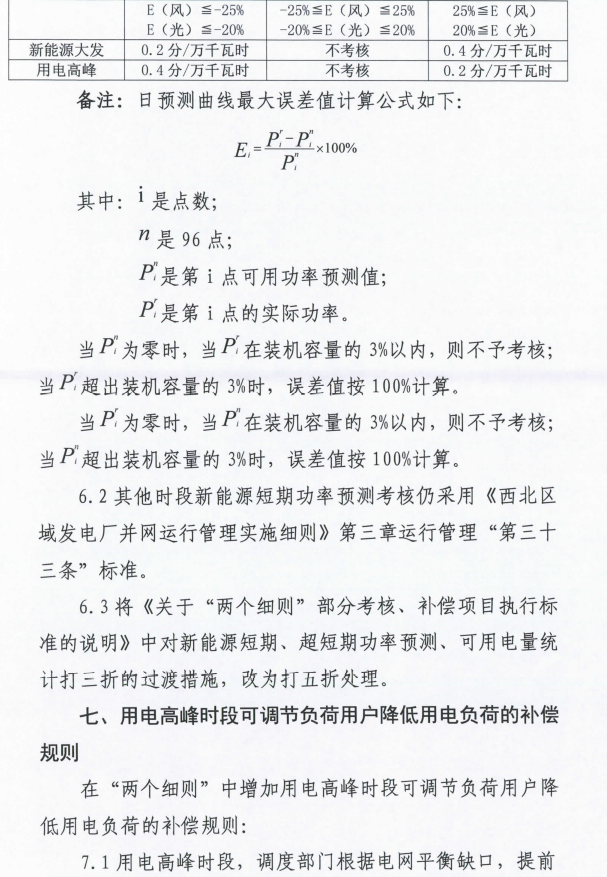 E（风）≦-25% -25%≦E（风）≦25% 25%≦E（风）
E（光）≦-20% -20%≦E（光）≦20% 20%≦E（光）
新能源大发 0.2 分/万千瓦时 不考核 0.4 分/万千瓦时
用电高峰 0.4 分/万千瓦时 不考核 0.2 分/万千瓦时
备注：日预测曲线最大误差值计算公式如下：
E_i = (P_i^r - P_i^n) / P_i^n ×100%
其中：i 是点数；
n 是 96 点；
P_i^n 是第 i 点可用功率预测值；
P_i^r 是第 i 点的实际功率。
当 P_i^n 为零时，当 P_i^r 在装机容量的 3%以内，则不予考核；
当 P_i^r 超出装机容量的 3%时，误差值按 100%计算。
当 P_i^r 为零时，当 P_i^n 在装机容量的 3%以内，则不予考核；
当 P_i^n 超出装机容量的 3%时，误差值按 100%计算。
6.2 其他时段新能源短期功率预测考核仍采用《西北区
域发电厂并网运行管理实施细则》第三章运行管理“第三十
三条”标准。
6.3 将《关于“两个细则”部分考核、补偿项目执行标
准的说明》中对新能源短期、超短期功率预测、可用电量统
计打三折的过渡措施，改为打五折处理。
七、用电高峰时段可调节负荷用户降低用电负荷的补偿
规则
在“两个细则”中增加用电高峰时段可调节负荷用户降
低用电负荷的补偿规则：
7.1 用电高峰时段，调度部门根据电网平衡缺口，提前